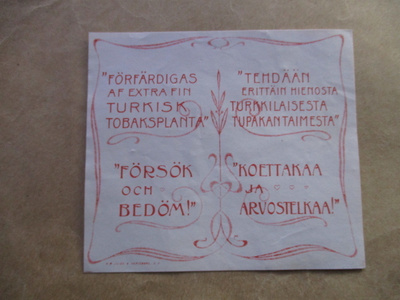 "FÖRFÄRDIGAS
AF EXTRA FIN
TURKISK
TOBAKSPLANTA"
"FÖRSÖK
OCH
BEDÖM!"
"TEHDÄÄN
ERITTÄIN HIENOSTA
TURKKILAISESTA
TUPAKANTAIMESTA"
"KOETTAKAA
JA
ARVOSTELKAA!"